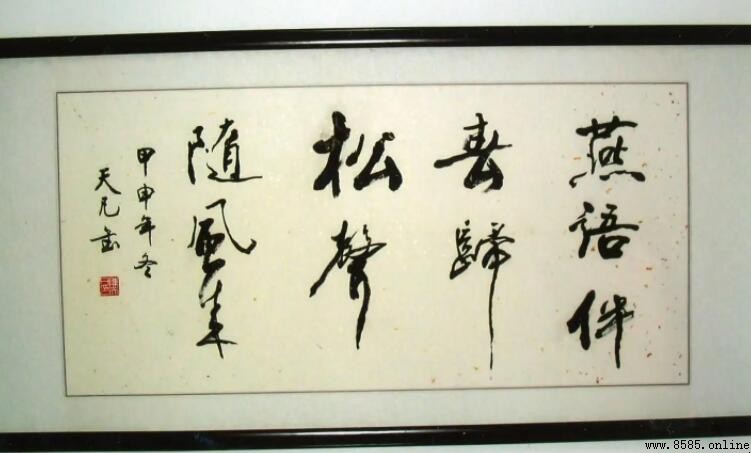 燕語伴
春歸
松聲
隨風來
甲申年冬
天凡書
www.8585.online